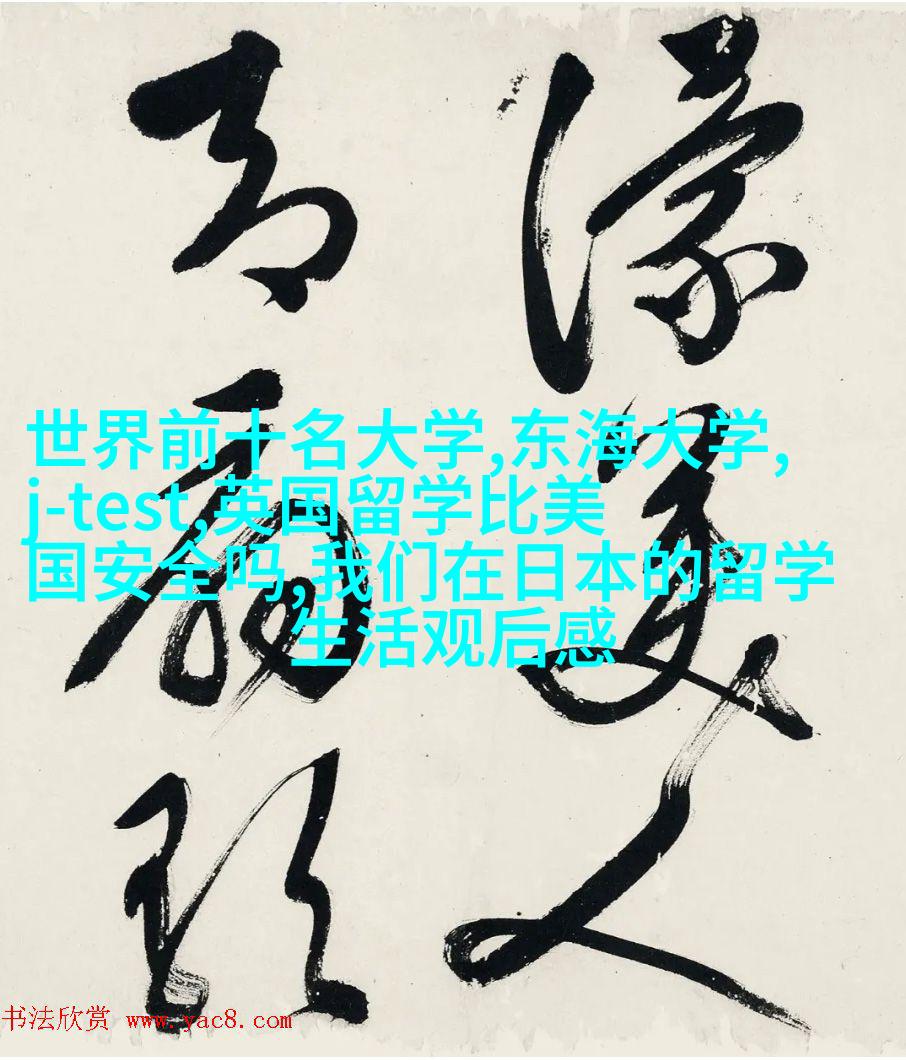 濠美人
世界前十名大学,东海大学,
j-test,英国留学比美
国安全吗,我们在日本的留学
生活观后感
书法欣赏 www.yac8.com